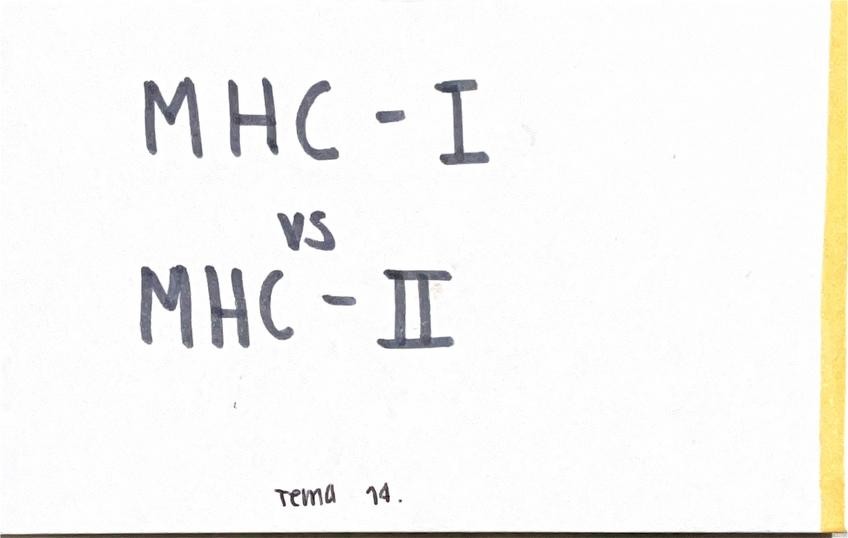 MHC - I
vs
MHC - II
Tema 14.